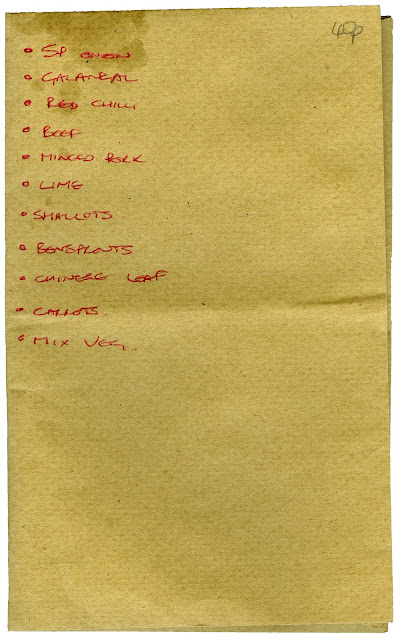 40p
• SP ONION
• GALANGAL
• RED CHILLI
• BEEF
• MINCED PORK
• LIME
• SHALLOTS
• BENSPROUTS
• CHINESE LEAF
• CARROTS
• MIX VEG.